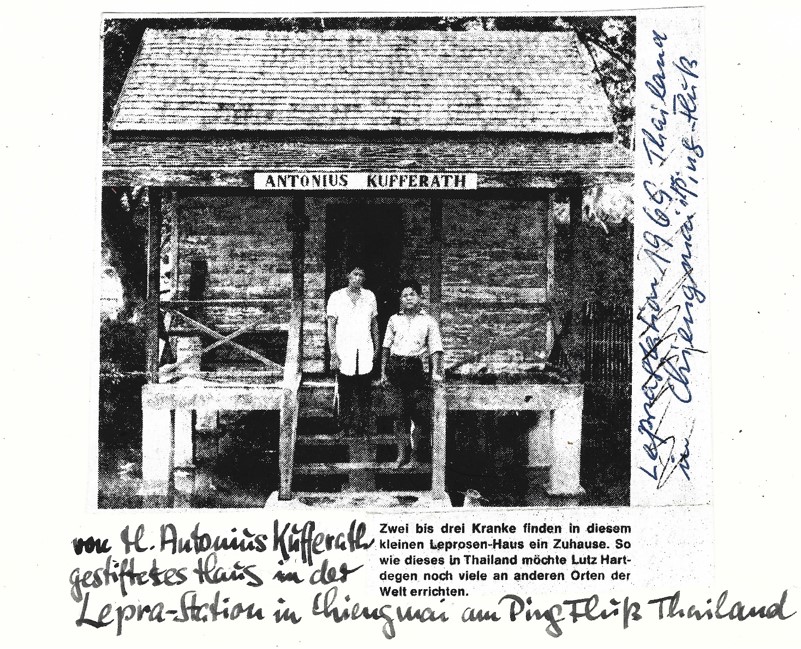 ANTONIUS KUFFERATH
Leprastation 1969 Thailand
in Chiengmai "Ping-Fluß
von H. Antonius Kufferath
gestiftetes Haus in der
Lepra-Station in Chiengmai am Ping Fluß Thailand
Zwei bis drei Kranke finden in diesem
kleinen Leprosen-Haus ein Zuhause. So
wie dieses in Thailand möchte Lutz Hart-
degen noch viele an anderen Orten der
Welt errichten.